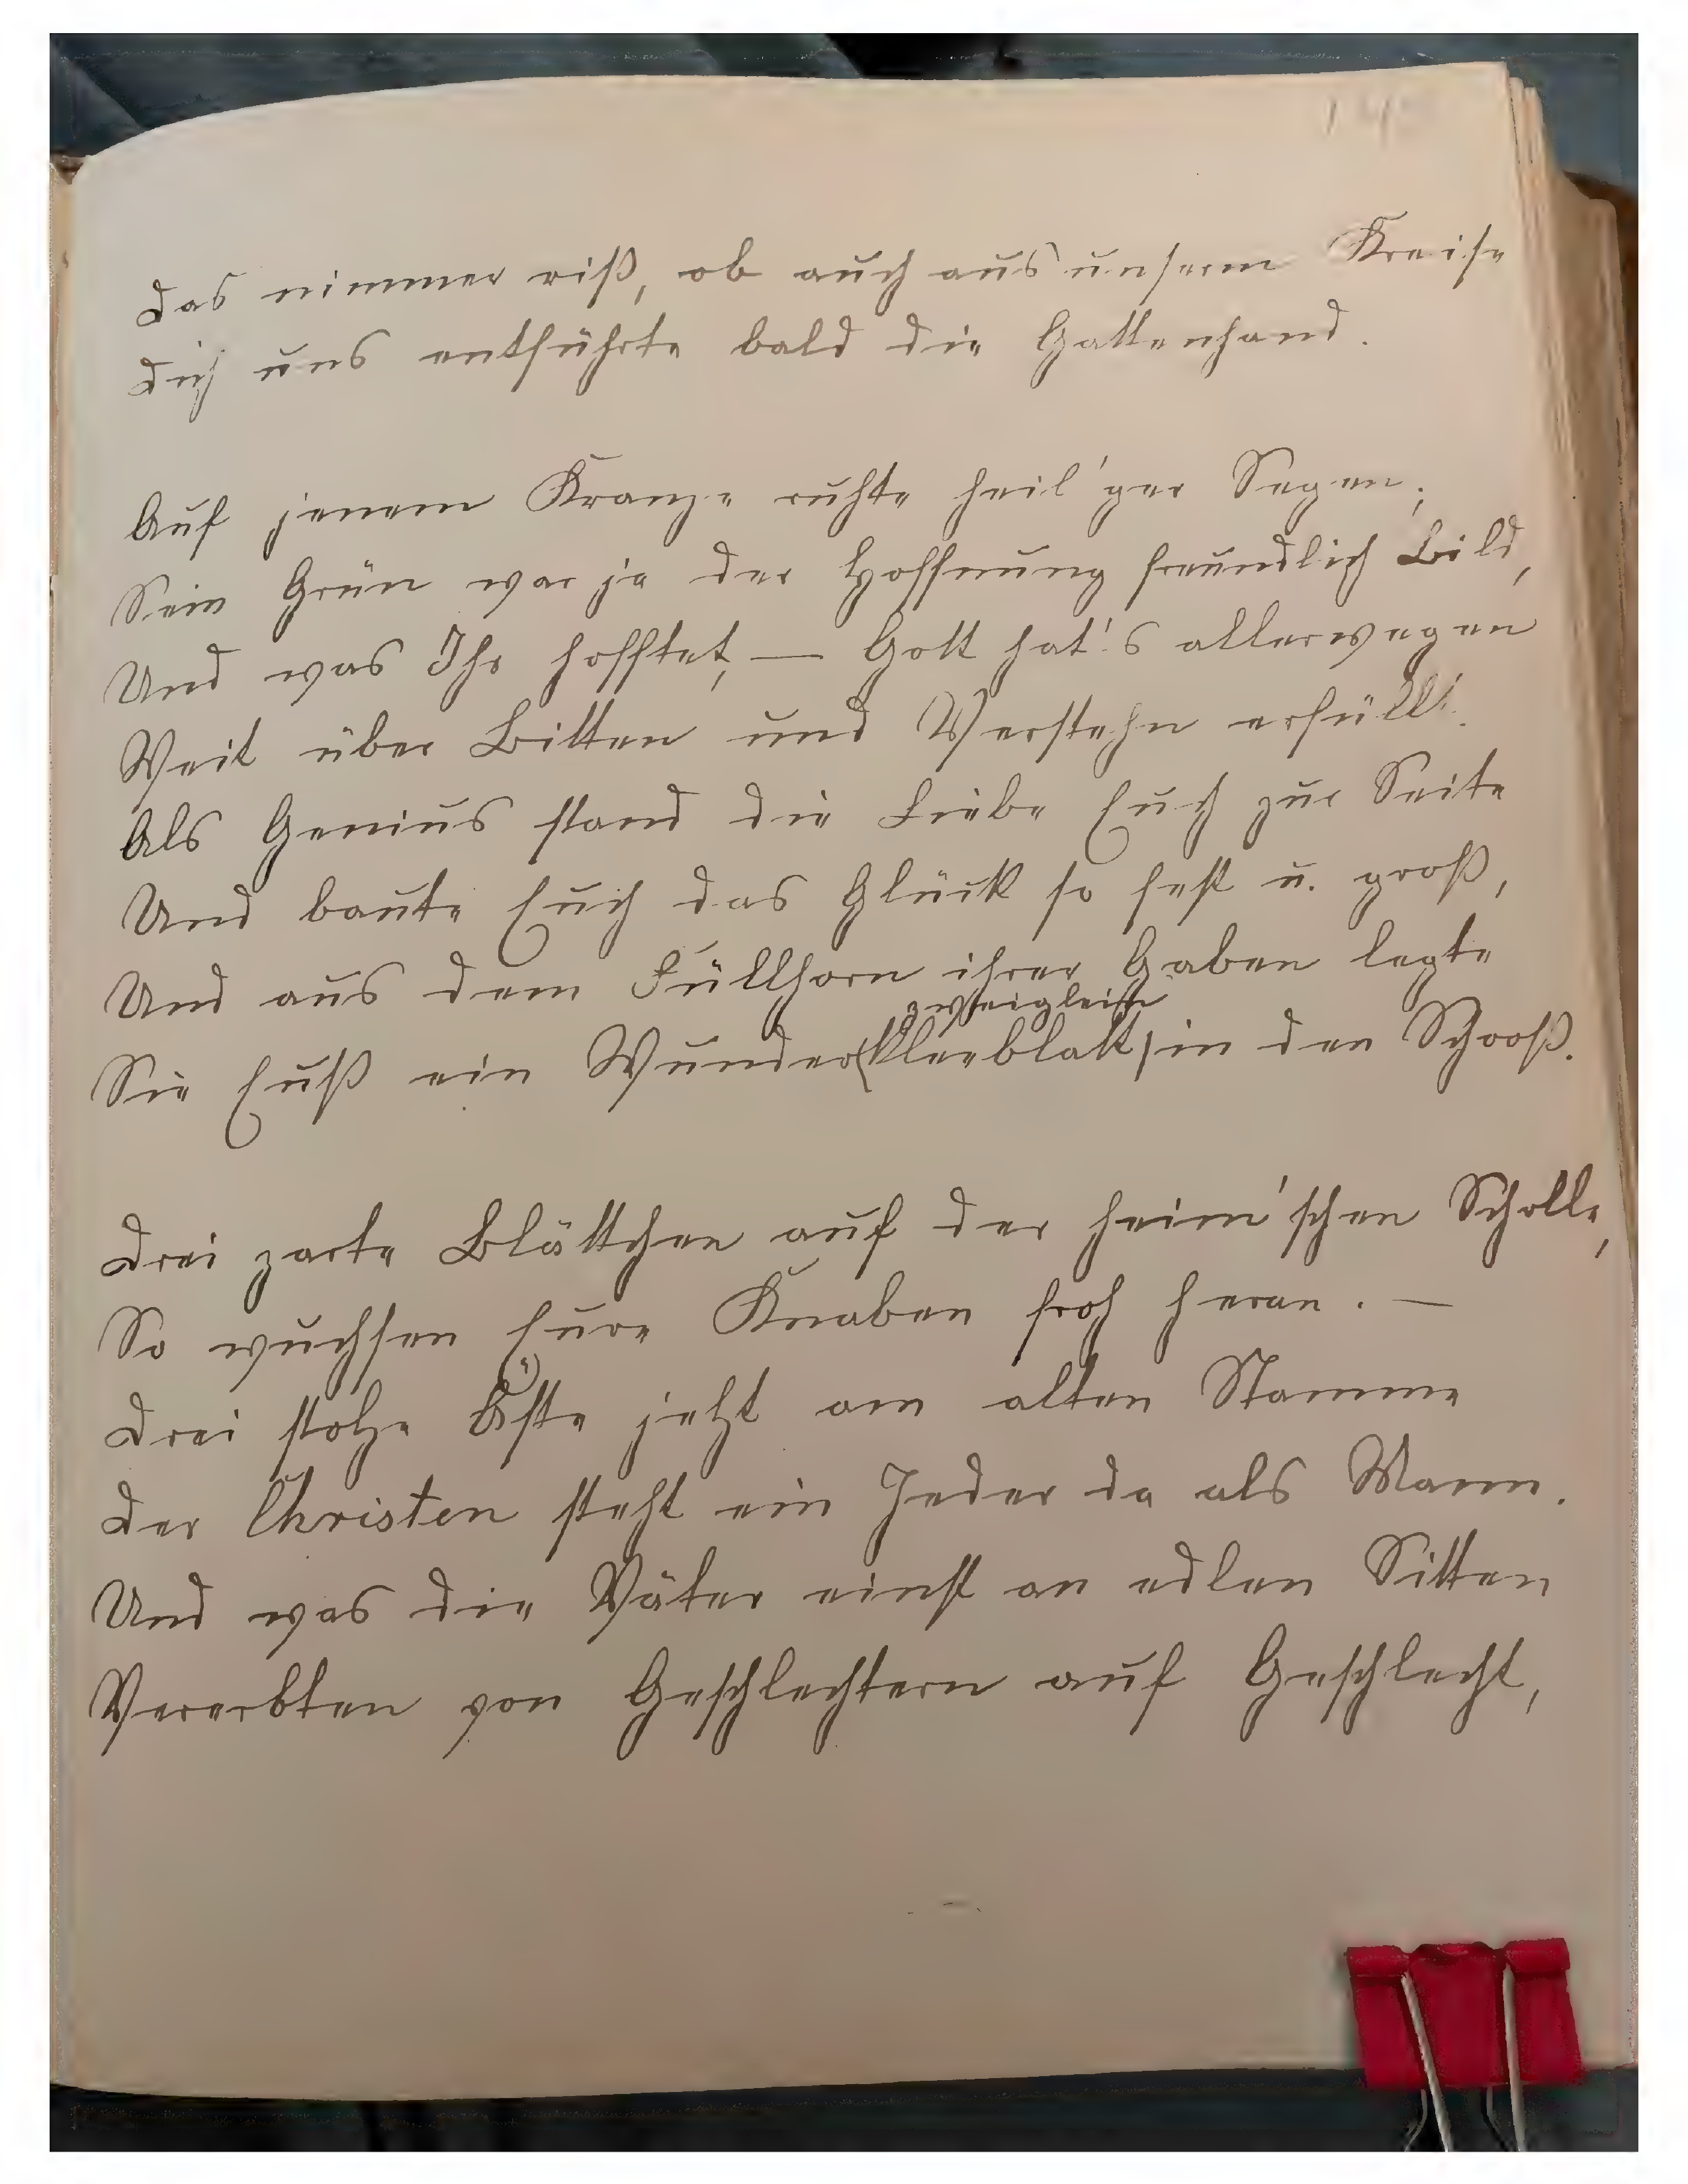 das nimmer riß, ob auch aus unserm Kreise
dich uns entführte bald die Gattenhand.
Auf jenem Kranze ruhte heil'ger Segen;
Sein Grün war ja der Hoffnung freundlich Bild,
Und was Ihr hofftet, — Gott hat's allerwegen
Weit über Bitten und Verstehn erfüllt.
Als Genius stand die Liebe Euch zur Seite
Und baute Euch das Glück so fest u. groß,
Und aus dem Füllhorn ihrer Gaben legte
Sie Euß ein Wunder(kleeblatt) in den Schooß.
Drei zarte Blättchen auf der heim'schen Scholle,
So wuchsen Eure Knaben froh heran. —
Drei stolze Äste jetzt am alten Stamme
Der Christen steht ein Jeder da als Mann.
Und was die Väter einst an edlen Sitten
Vererbten von Geschlechtern auf Geschlecht,